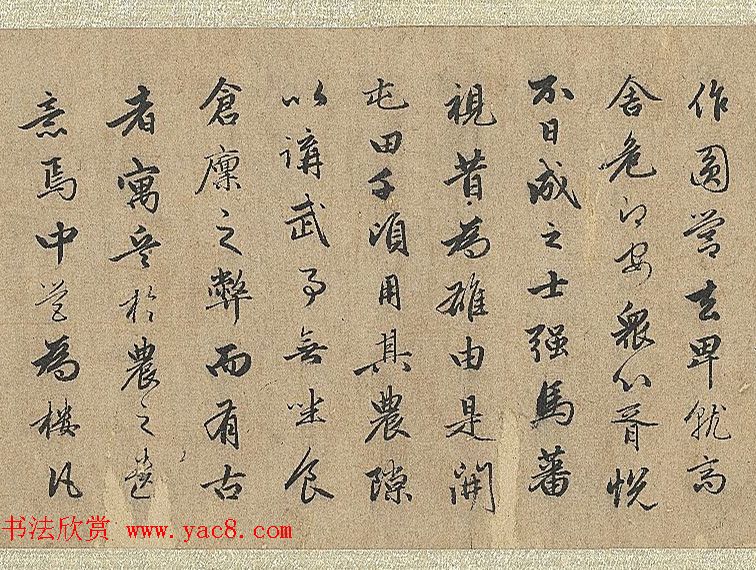 作圓營去卑就高
舍危即安衆心胥悅
不日成之士强馬蕃
視昔為雄由是開
屯田千頃用其農隙
以講武事無坐食
倉廩之弊而有古
者寓兵於農之遺
意焉中營為樓凡
书法欣赏 www.yac8.com